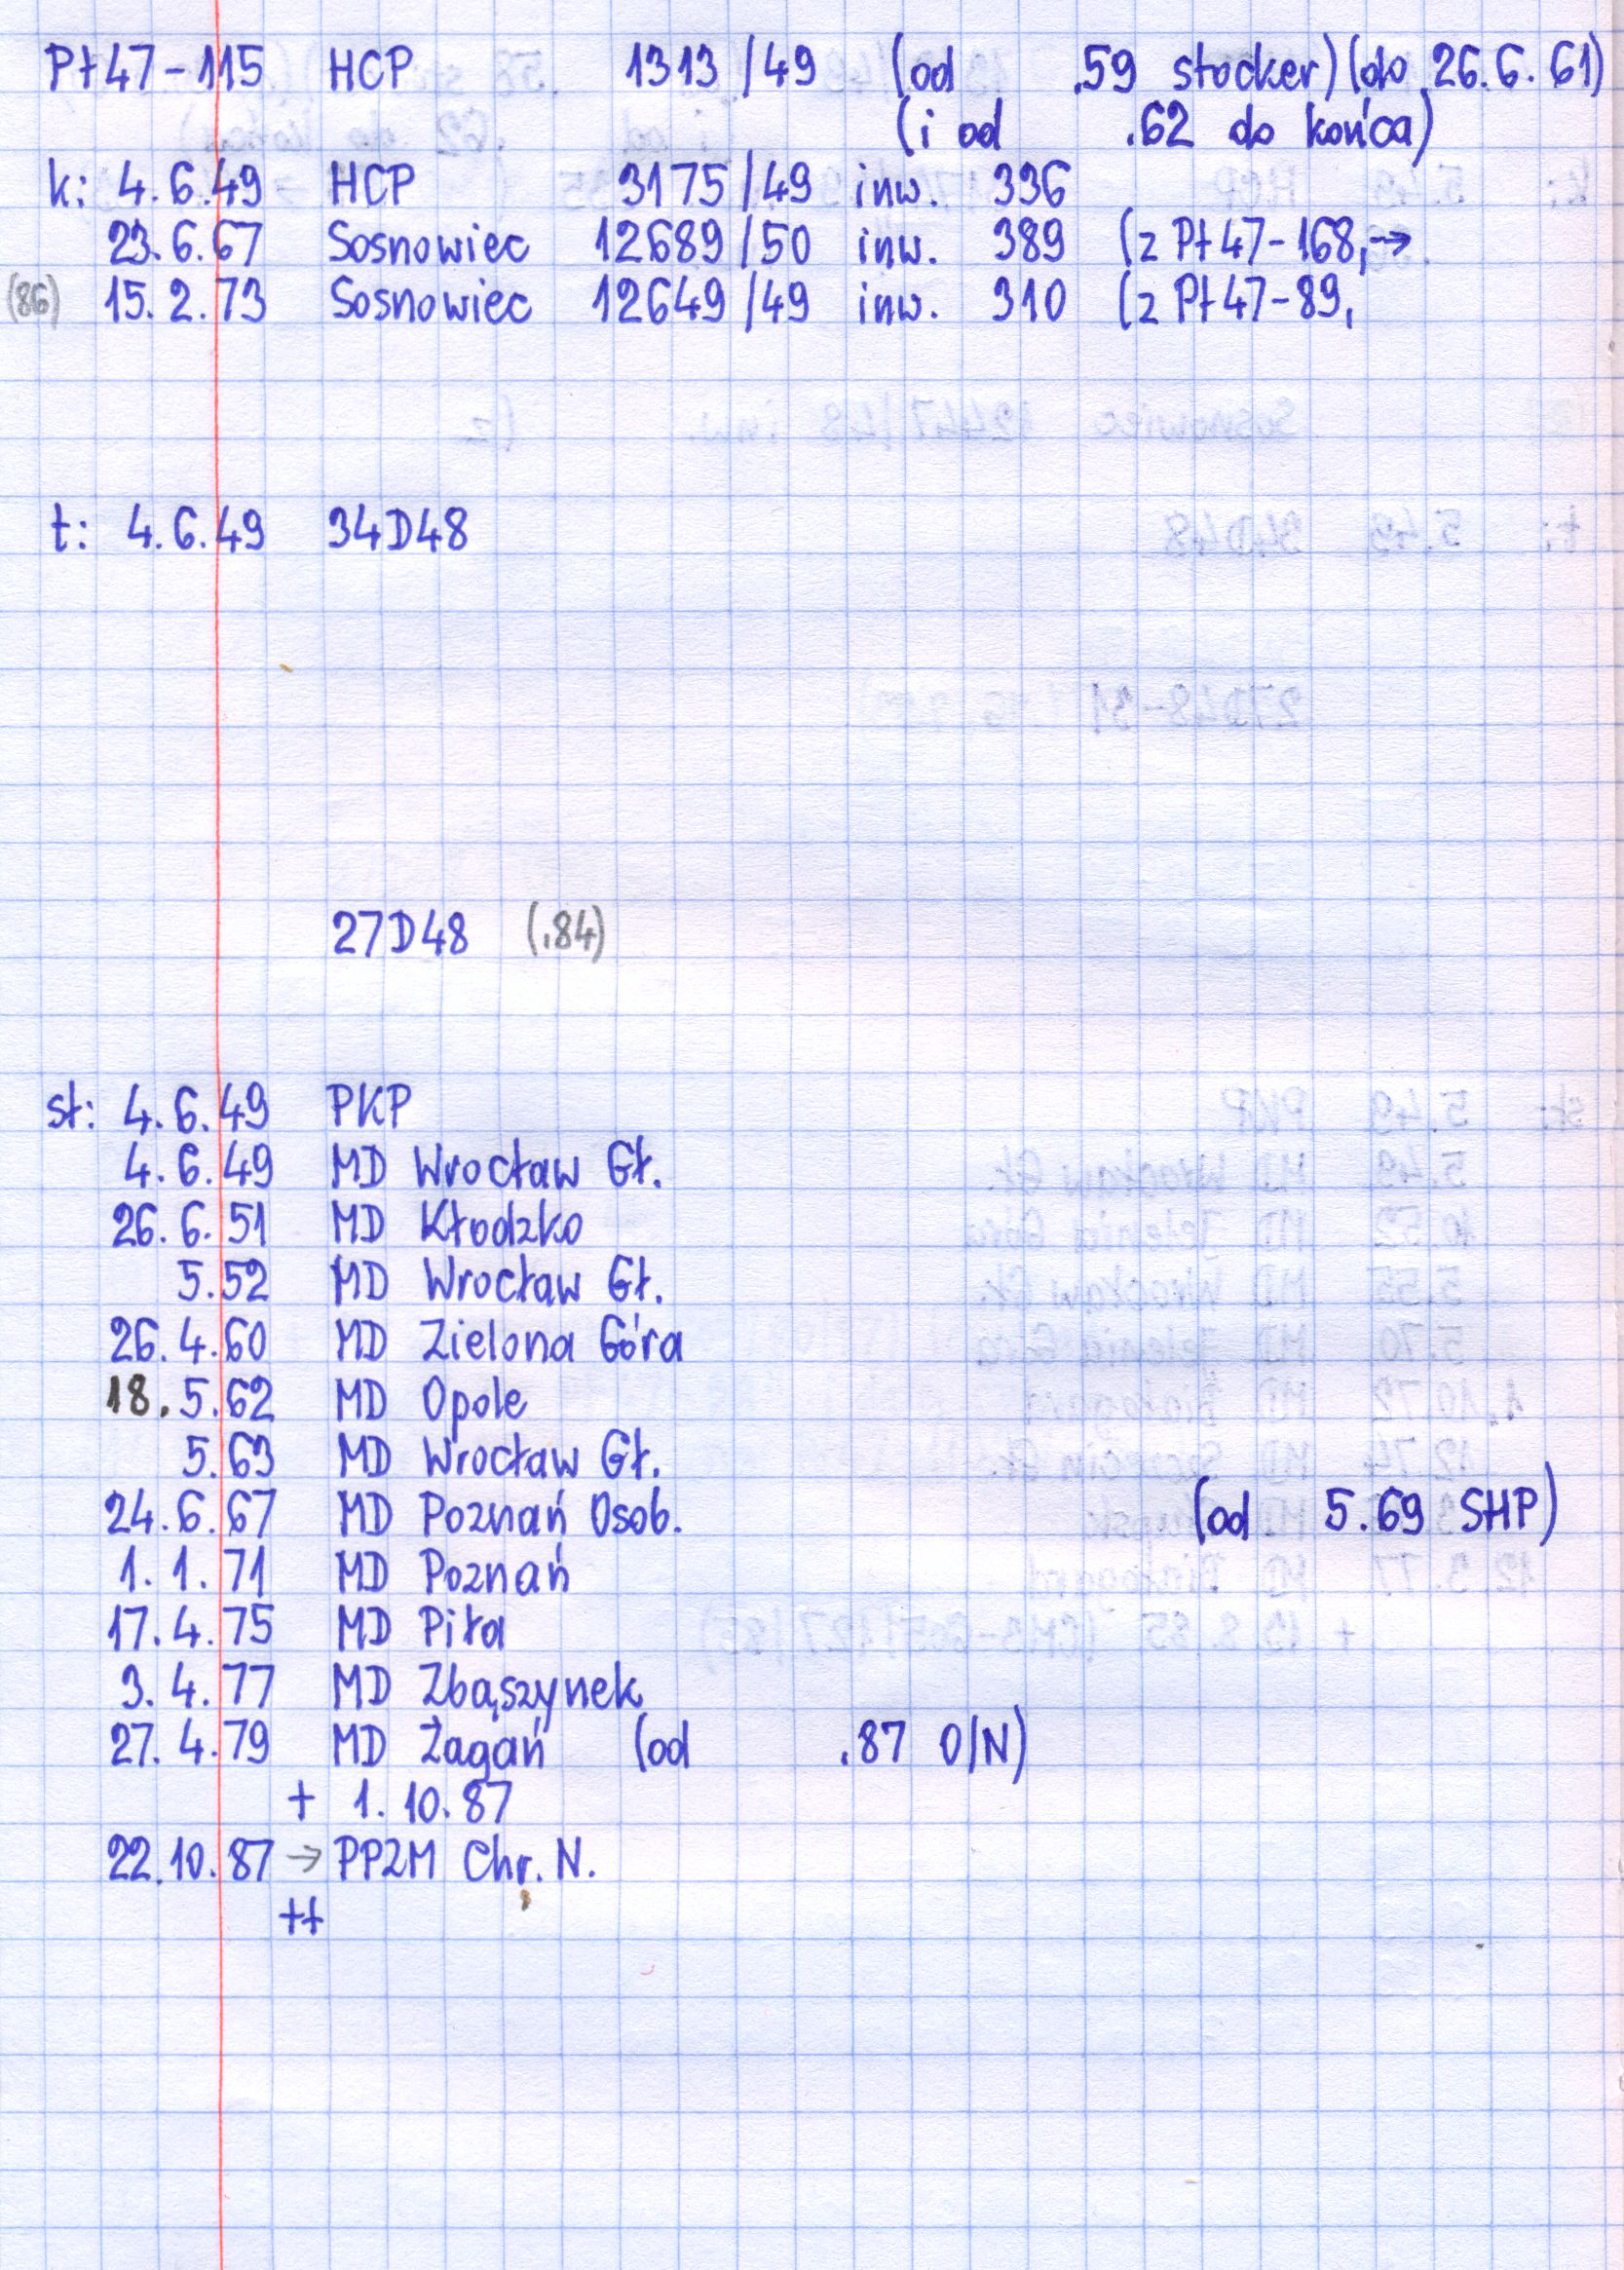 Pt47-115 HCP 1313/49 (od .59 stocker) (do 26.6.61)
(i od .62 do końca)
k: 4.6.49 HCP 3175/49 inw. 336
23.6.67 Sosnowiec 12689/50 inw. 389 (z Pt47-168,→
(86) 15.2.73 Sosnowiec 12649/49 inw. 310 (z Pt47-89,
t: 4.6.49 34D48
27D48 (.84)
st: 4.6.49 PKP
4.6.49 MD Wrocław Gł.
26.6.51 MD Kłodzko
5.52 MD Wrocław Gł.
26.4.60 MD Zielona Góra
18.5.62 MD Opole
5.63 MD Wrocław Gł.
24.6.67 MD Poznań Osob. (od 5.69 SHP)
1.1.71 MD Poznań
17.4.75 MD Piła
3.4.77 MD Zbąszynek
27.4.79 MD Żagań (od .87 O/N)
+ 1.10.87
22.10.87 → PPZM Chr. N.
++